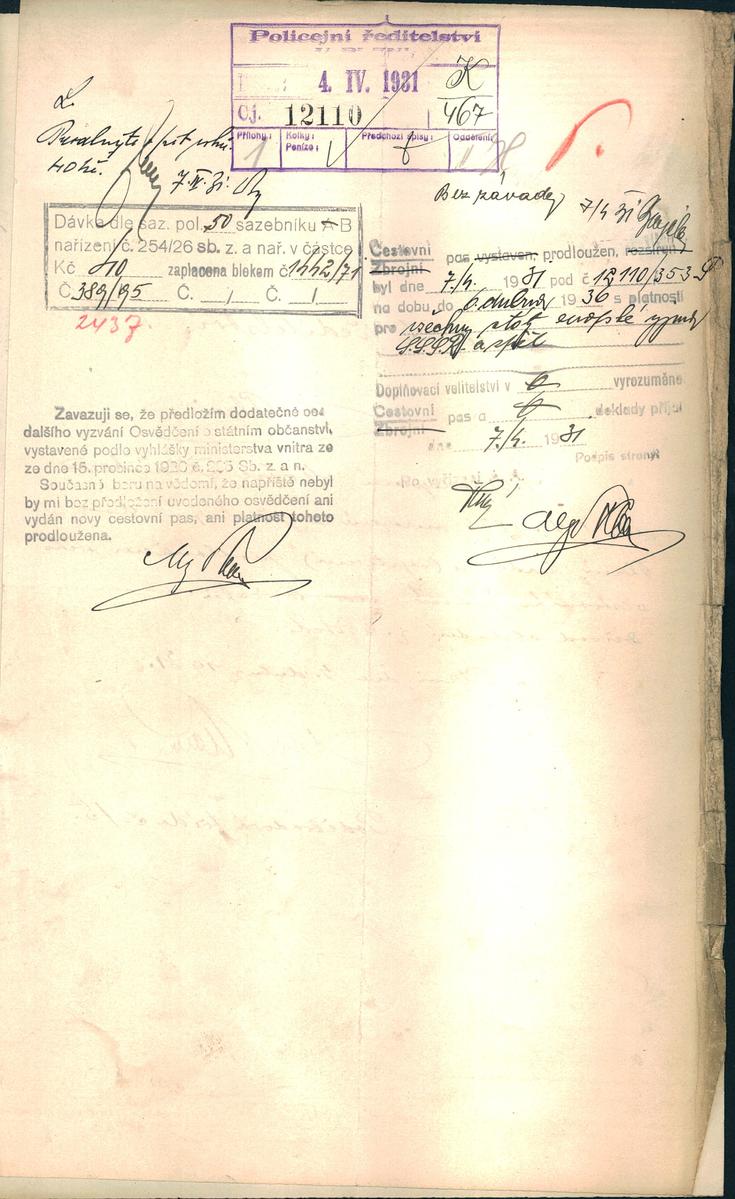 Policejní ředitelství
V PLZNI
4. IV. 1931
K
467
Čj. 12110
Přílohy: 1
Kolky:
Peníze:
Předchozí spisy:
Oddělení:
40 Kč.
7. IV. 31.
Bez závady
7/4 31
Dávka dle saz. pol. 50 sazebníku A B
nařízení č. 254/26 sb. z. a nař. v částce
Kč 40 zaplacena blokem č. 1442/71
Č. 389/95 Č. / Č. /
2437.
Cestovní
Zbrojní
pas vystaven, prodloužen, rozšířen
byl dne 7./4. 1931 pod č 12110/353
na dobu do 6 dubna 1936 s platností
pro všechny státy evropské vyjma
S.S.S.R. a zpět
Doplňovací velitelství v vyrozuměno
Cestovní
Zbrojní
pas a doklady přijal
dne 7./4. 1931.
Podpis strany:
Zavazuji se, že předložím dodatečně bez
dalšího vyzvání Osvědčení o státním občanství,
vystavené podle vyhlášky ministerstva vnitra ze
ze dne 15. prosince 1920 č. Sb. z. a n.
Současně beru na vědomí, že napříště nebyl
by mi bez předložení uvedeného osvědčení ani
vydán nový cestovní pas, ani platnost tohoto
prodloužena.